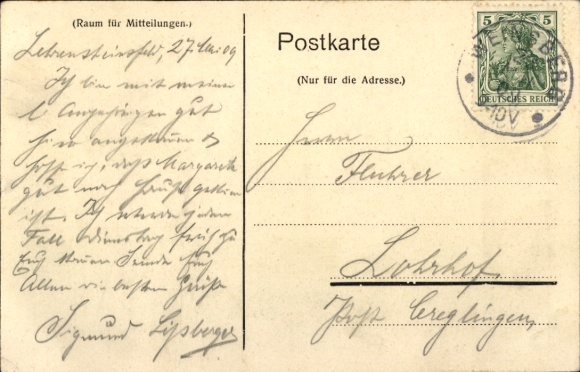 (Raum für Mitteilungen.)
Lehrensteinsfeld, 27. Mai 09
Ich bin mit meinen
l Angehörigen gut
hier angekommen &
hoffe ich, daß Margareth
gut nach Hause gekom
ist. Ich werde jeden
Fall Dienstag früh zu
Euch kommen Sende Euch
Allen die besten Grüße
Sigmund Lißberger
Postkarte
(Nur für die Adresse.)
5 5
DEUTSCHES REICH
WEINSBERG
10V
Herrn
Fluhrer
Lohrhof
Post Creglingen